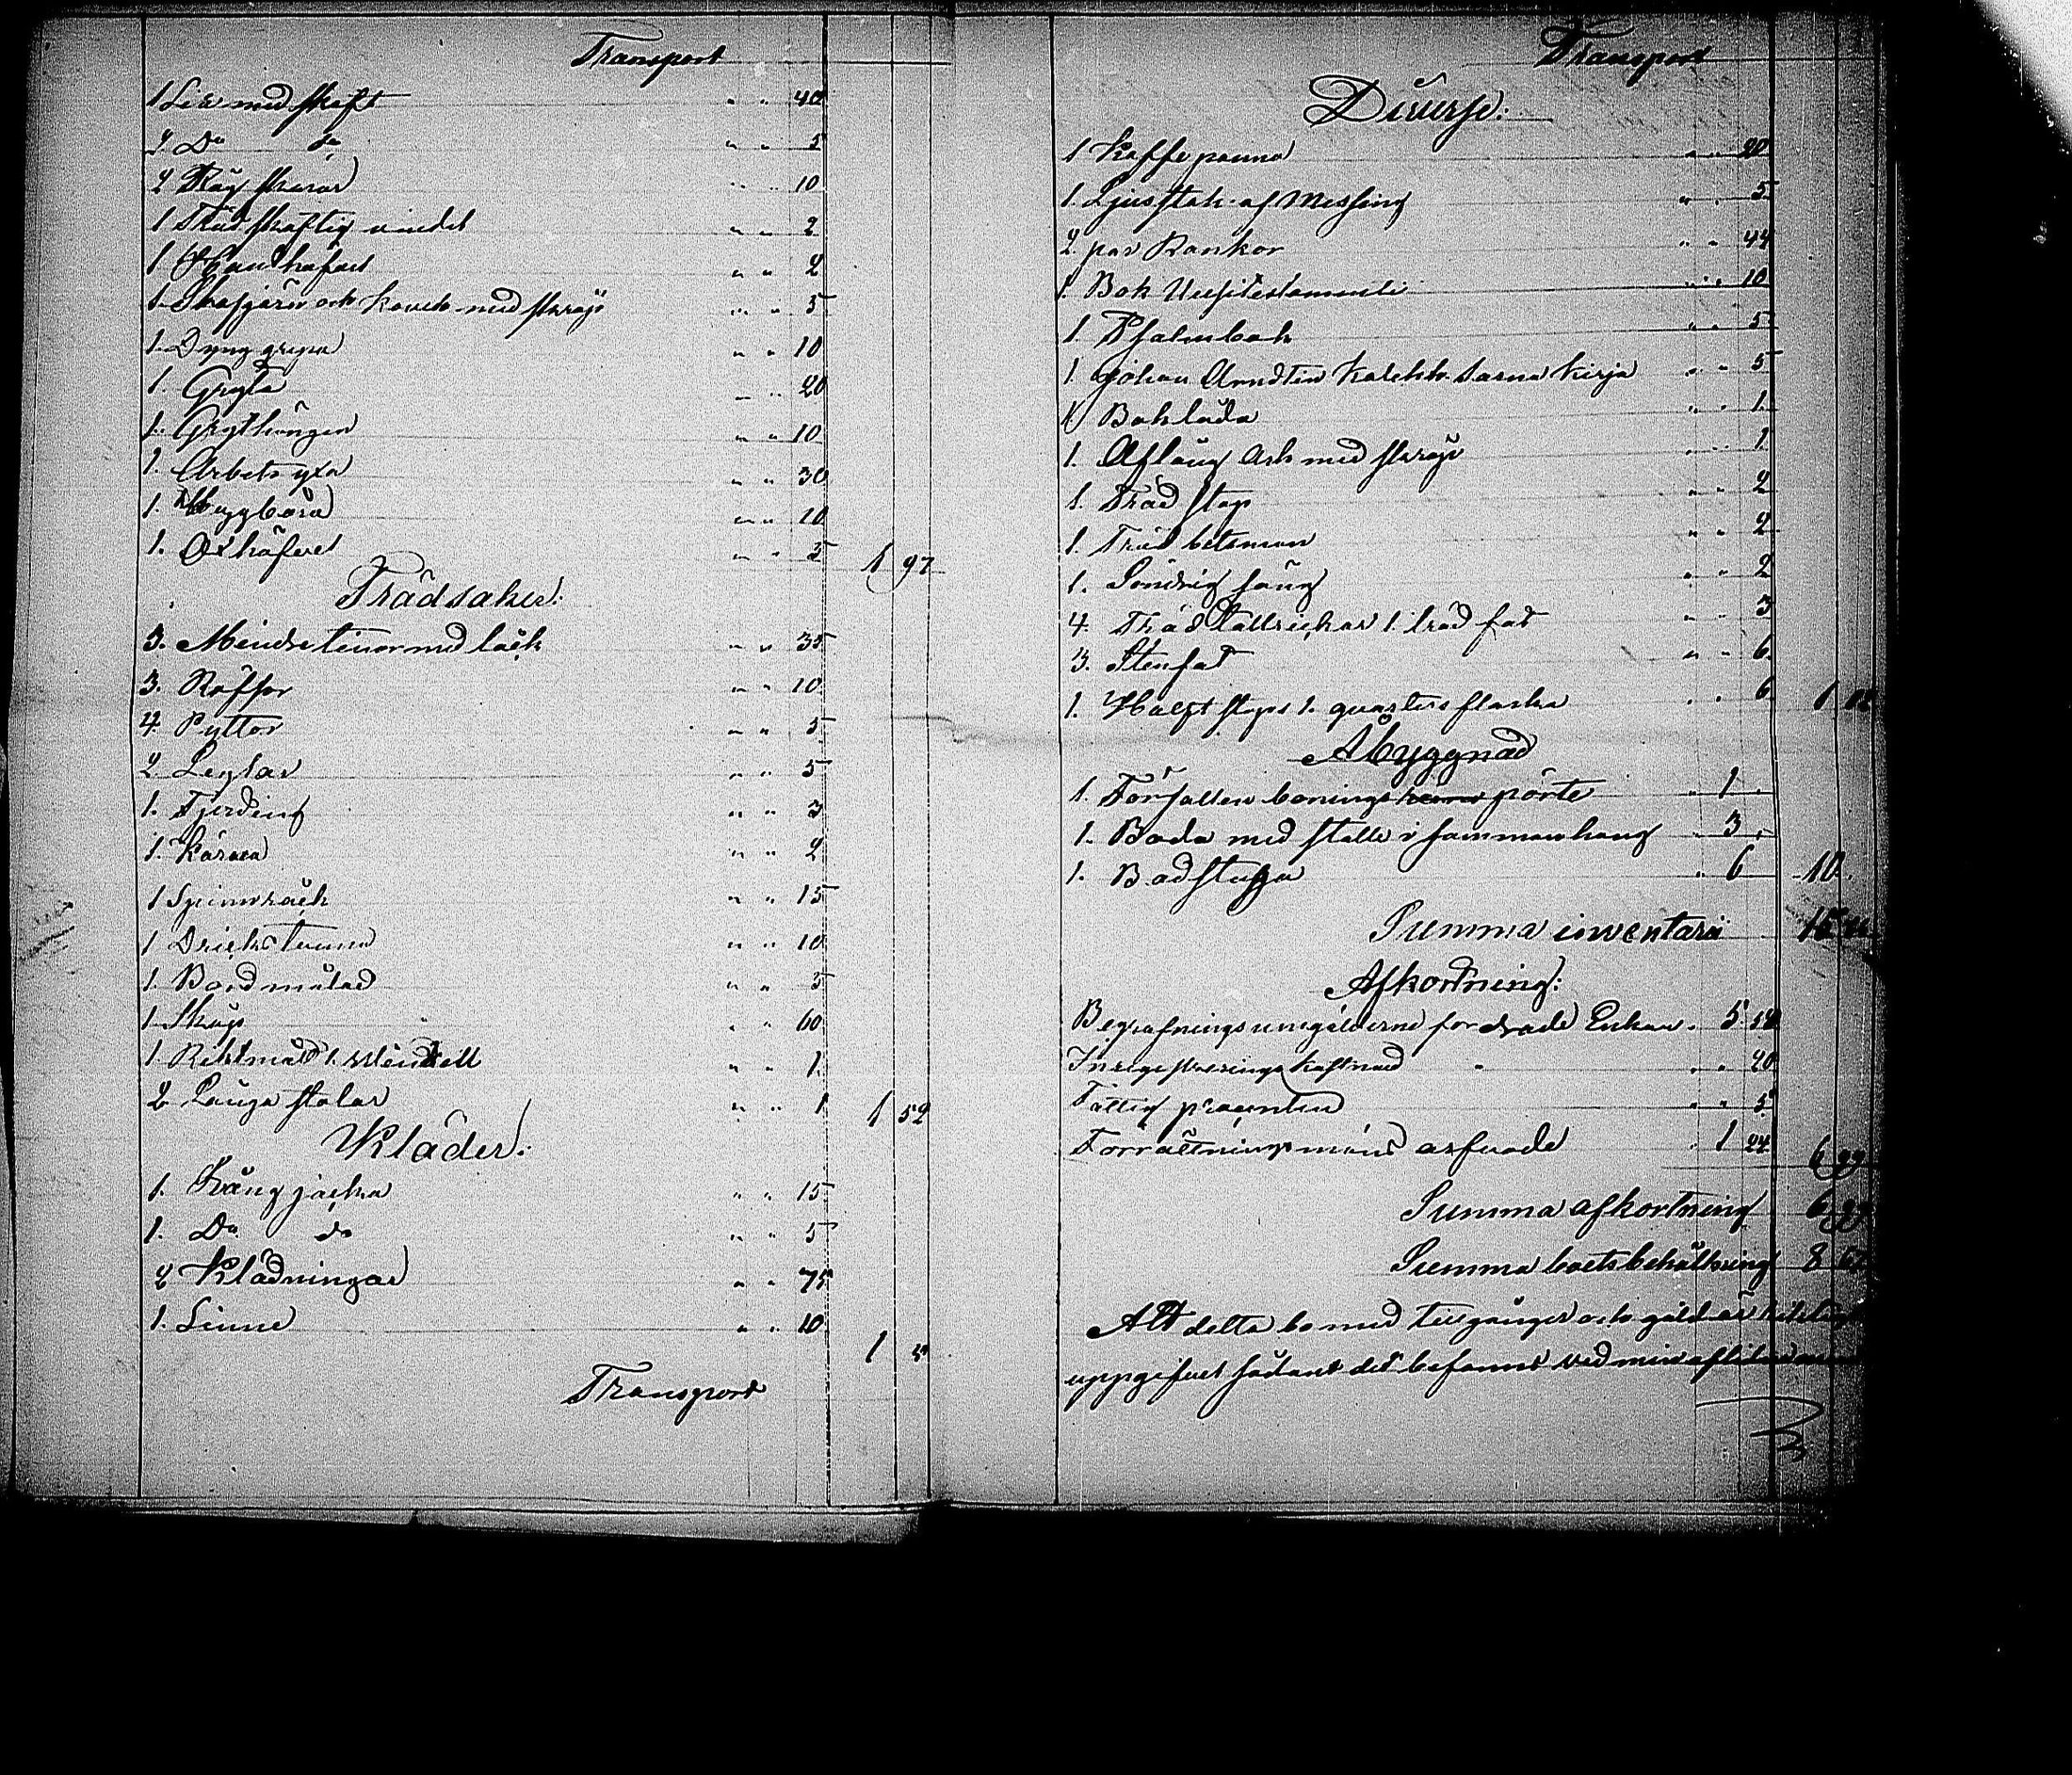 Transport
1 Lie med skaft " " 40
1 Do do " " 5
2 Råg skäror " " 10
1 Träd skaftig " " 2
1 " " 2
1. och med skräp " " 5
1. Dyng grepa " " 10
1. Gryta " " 20
1. Grythängen " " 10
1. Arbets yxa " " 30
1. Huggbåra " " 10
1. " " 5 1 97
Trädsaker:
3. Mindre tinor med låck " " 35
3. Räfsor " " 10
4. Pyttor " " 5
2. Leglar " " 5
1. Fjerding " " 3
1. Kärna " " 2
1 Spinnråck " " 15
1 Dricks tunna " " 10
1. Bord målad " " 5
1. Skåp " " 60
1 1. " " 1.
2 Långa stolar " " 1 1 52
Kläder:
1. Kång jacka " " 15
1. Do do " " 5
2 Klädningar " " 75
1. Linne " " 10
1 5
Transport
Transport
Diverse:
1 Kaffe panna " " 20
1. Ljusstak af Messing " " 5
2 par Kankor " " 44
1. Bok Uusitestamenti " " 10
1. Psalmbok " " 5
1. Johan Arndtin Kirja " " 5
1 Boklåda " " 1.
1. Aflång Ask med skräp " " 1
1. Träd stop " " 2
1. Träd betsman " " 2
1. Söndrig säng " " 2
4. Träd tallrickar 1. träd fat " " 3
3. Stenfat " " 6.
1. Halft stops 1. qvarters flaska " " 6 1 12
Åbyggnad
1. Förfallen bonings pörte " 1 "
1. Boda med stalle i sammanhang 3 "
1. Badstuga " 6 10.
Summa inventarii 15
Afkortning:
Begrafnings umgälderne för Enkan. 5 50
Inregistrerings kostnad " " " 20
Fattig procenten " " 5
Förrättningsmäns arfvode " 1 24 6 99
Summa afkortning 6 99
Summa boets behållning 8 67
Allt detta bo med tillgånger och gäld är
uppgifvet sådant det befanns vid min aflidne